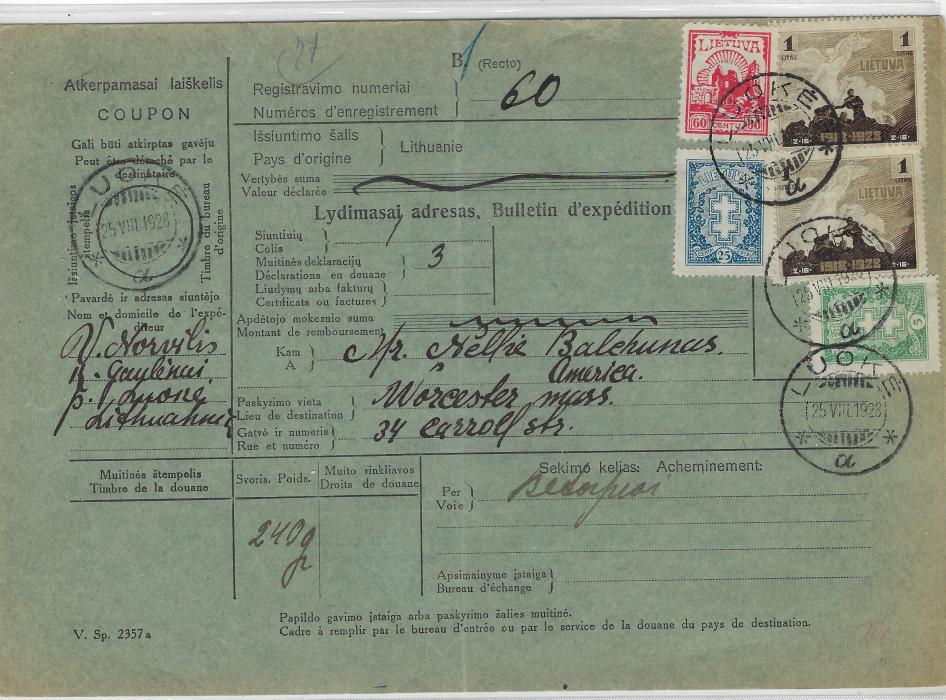 Atkerpamasai laiškelis
COUPON
Gali būti atkirptas gavėju
Peut être détaché par le
destinataire
Išsiuntimo įstaigos
štempelis
Timbre du bureau
d'origine
LUOKĖ
25 VIII.1928
α
Pavardė ir adresas siuntėjo
Nom et domicile de l'expé-
diteur
V. Norvilis
k. Gaulėnai
p. Luokė
Lithuania
Muitinės štempelis
Timbre de la douane
V. Sp. 2357a
B. (Recto)
Registravimo numeriai
Numéros d'enregistrement
60
Išsiuntimo šalis
Pays d'origine
Lithuanie
Vertybės suma
Valeur déclarée
Lydimasai adresas, Bulletin d'expédition
Siuntinių
Colis
1
Muitinės deklaracijų
Déclarations en douane
3
Liudymų arba faktūrų
Certificats ou factures
Apdėtojo mokesnio suma
Montant de remboursement
Kam
A
Mr. Nellie Balchunas.
America.
Paskyrimo vieta
Lieu de destination
Worcester mass.
Gatvė ir numeris
Rue et numéro
34 Carroll str.
Svoris. Poids.
240g
Muito rinkliavos
Droits de douane
Sekimo kelias: Acheminement:
Per
Voie
Apsimainyme įstaiga
Bureau d'échange
Papildo gavimo įstaiga arba paskyrimo šalies muitinė.
Cadre à remplir par le bureau d'entrée ou par le service de la douane du pays de destination.
LIETUVA
60 CENTŲ 60
1 LITAS 1
LIETUVA
2-16. 1918-1928 2-16.
25
1 1
LIETUVA
2-16. 1918-1928 2-16.
5
LUOKĖ
25 VIII.1928
α
LUOKĖ
25 VIII.1928
α
LUOKĖ
25 VIII.1928
α